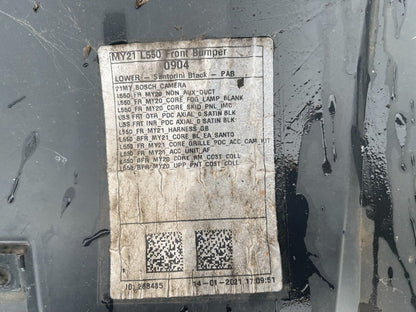 MY21 L550 Front Bumper
0904
LOWER - Santorini Black - PAB
21MY_BOSCH_CAMERA
L550_FR_MY20_NON_AUX_DUCT
L550_FR_MY20_CORE_FOG_LAMP_BLANK
L550_FR_MY20_CORE_SKID_PNL_IMC
L55 FRT OTR PDC AXIAL 0 SATIN BLK
L55 FRT INR PDC AXIAL 0 SATIN BLK
L550_FR_MY21_HARNESS_GB
L550_BFR_MY21_CORE_BL_EA_SANTO
L550_FR_MY21_CORE_GRILLE_PDC_ACC_CAM_KIT
L550_FR_MY21_ACC_UNIT_AF
L550_BFR_MY20_CORE_RM_COST_COLL
L550_BFR_MY20_UPP_PNT_COST_COLL
ID: 268485
4-01-2021 17:09:51